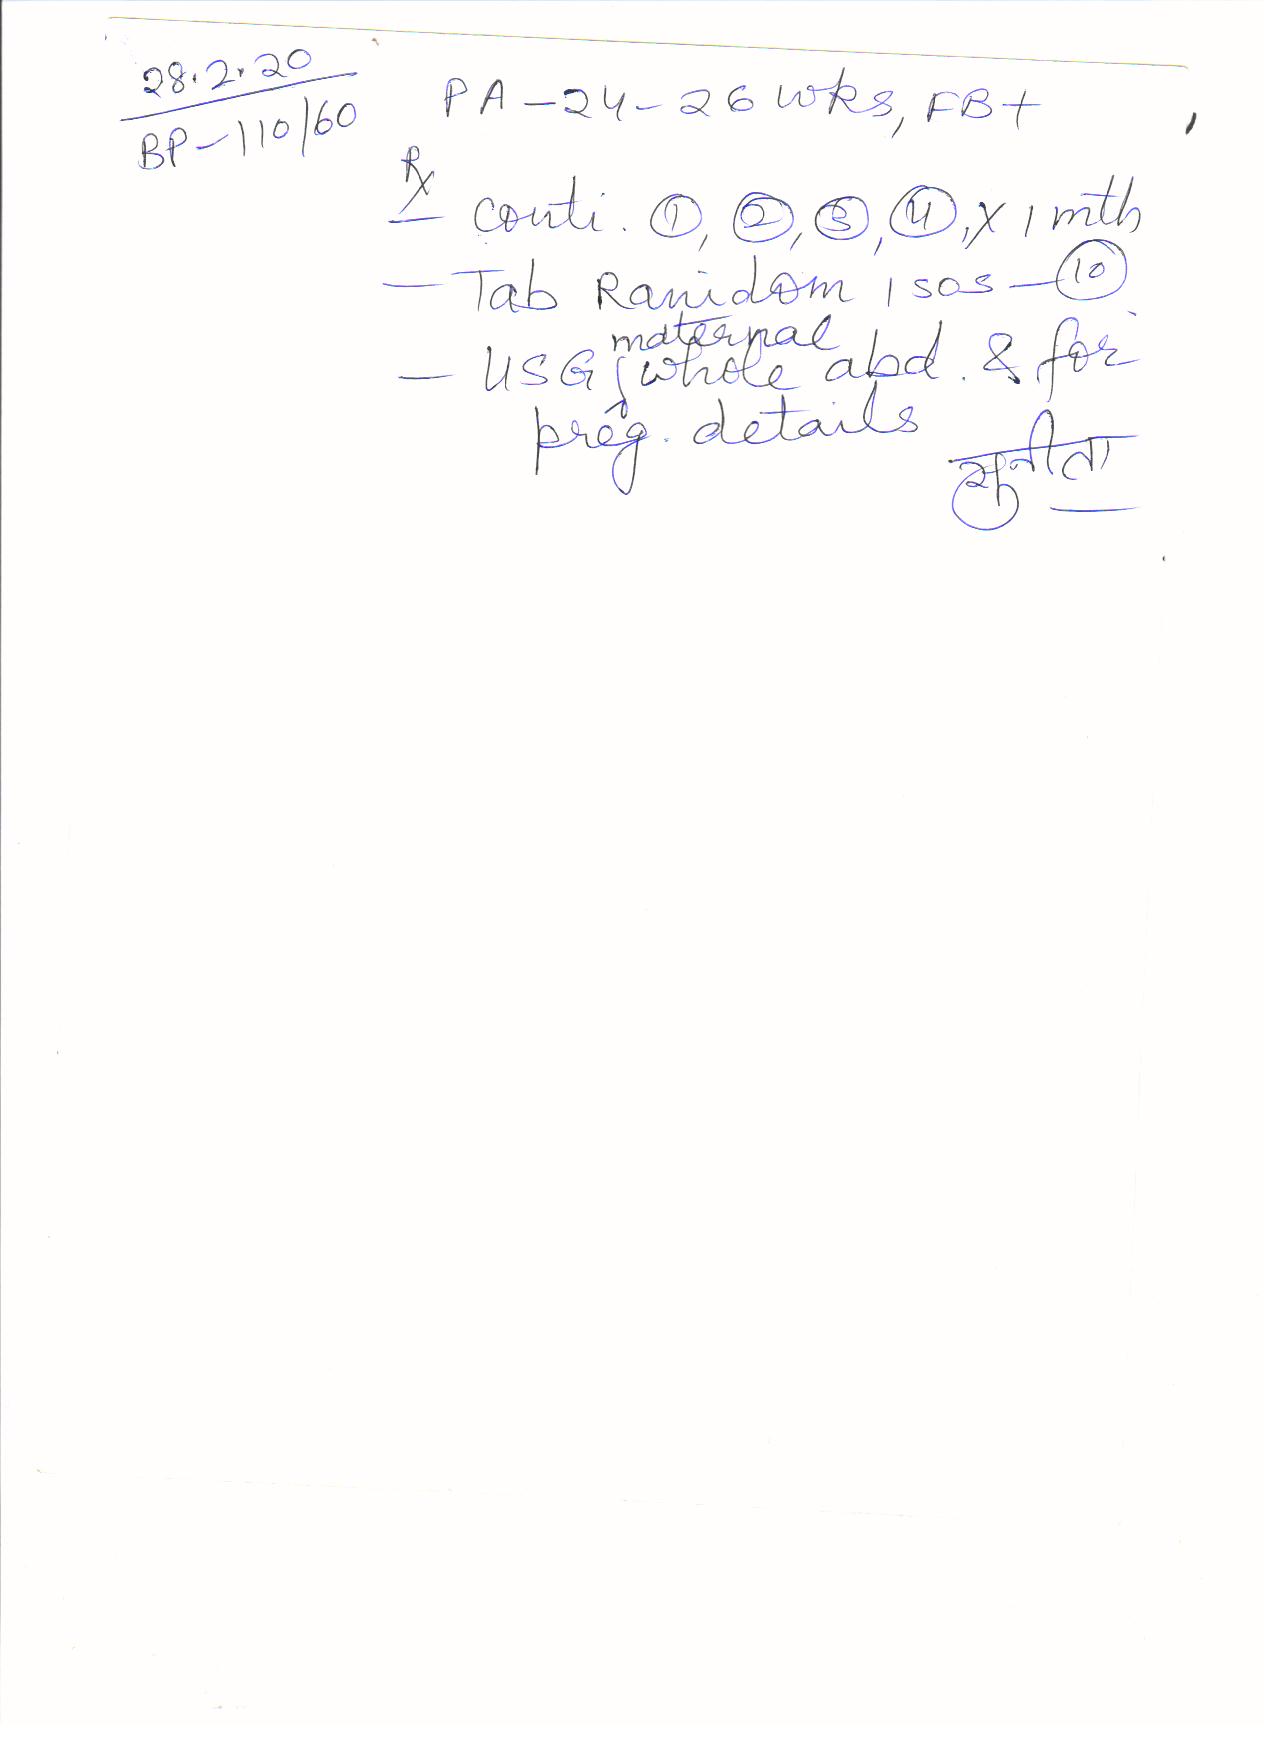 28.2.20
BP-110/60
PA-24-26 wks, FB+
Rx
- Conti. ①, ②, ③, ④, x 1 mth
- Tab Ranidom 1 sos - ⑩
- USG maternal whole abd. & for
preg. details
सुनीता